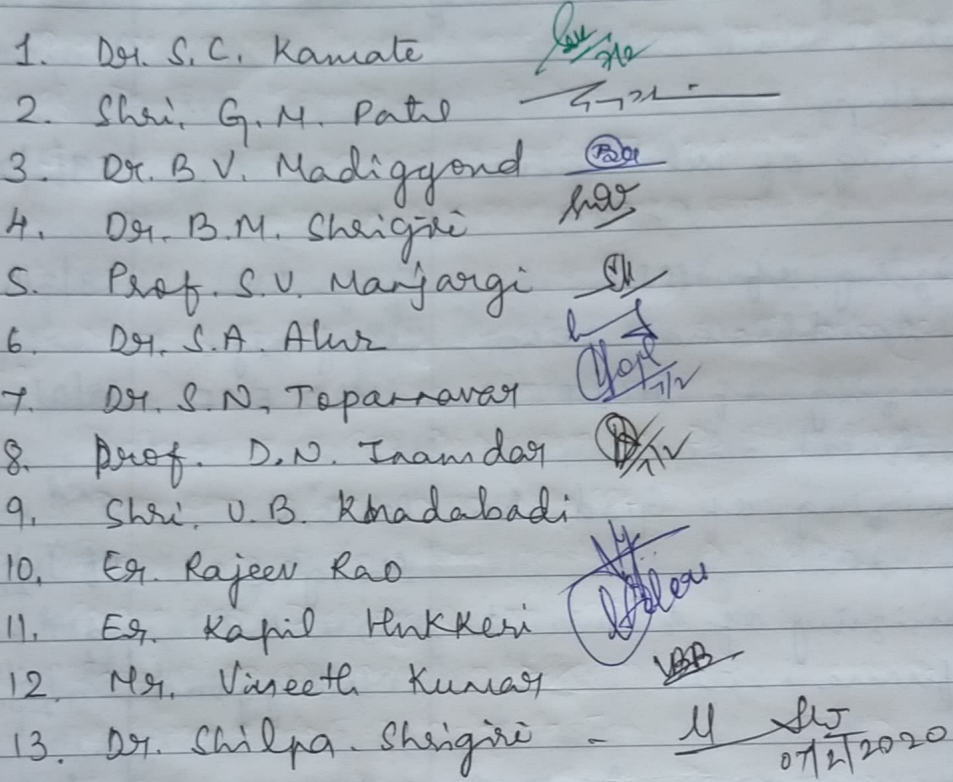 1. Dr. S. C. Kamate
2. Shri. G. M. Patil
3. Dr. B V. Madiggond
4. Dr. B.M. Shrigiri
5. Prof. S.V. Manjargi
6. Dr. S.A. Alur
7. Dr. S.N. Topannavar 7/2
8. Prof. D.N. Inamdar 7/2
9. Shri. U.B. Khadabadi
10. Er. Rajeev Rao
11. Er. Kapil Hukkeri
12. Mr. Vineeth Kumar
13. Dr. Shilpa. Shrigiri -
07/2/2020